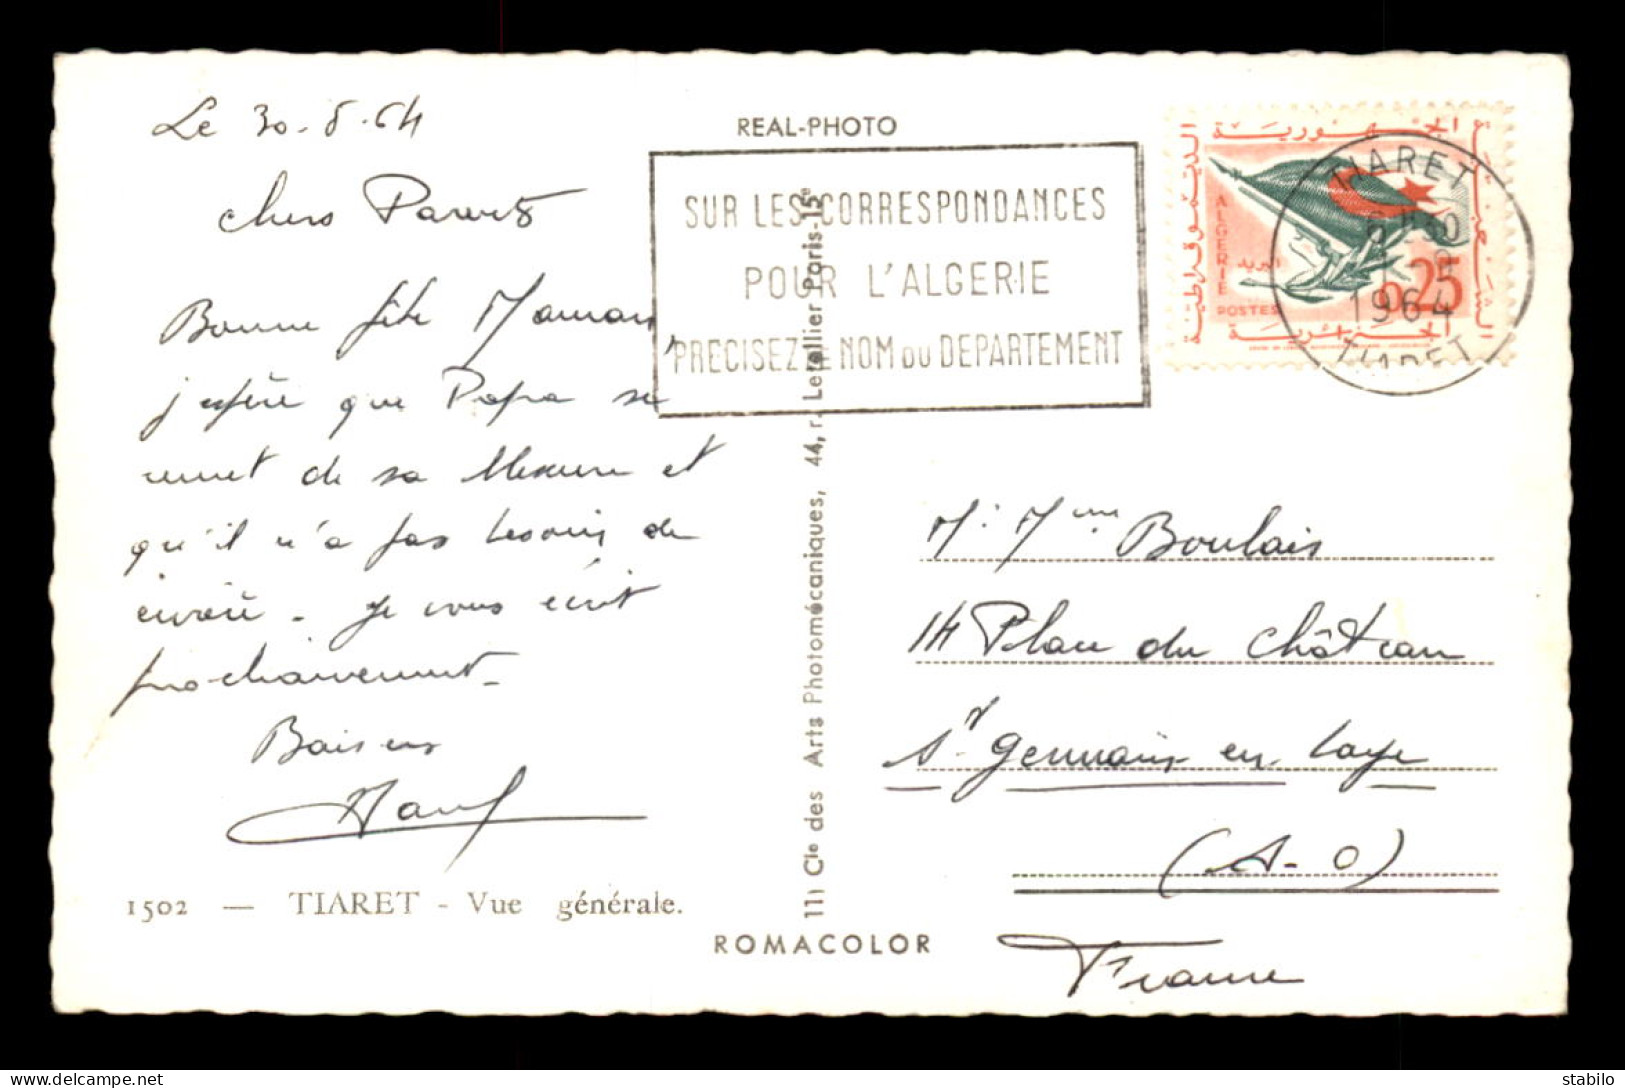 Le 30.5.64
Chers Parents
Bonne fête Maman
j'espère que Papa se
remet de sa blessure et
qu'il n'a pas besoin de
suivre - Je vous écrit
prochainement -
Baisers
1502 — TIARET - Vue générale.
REAL-PHOTO
11, Cie des Arts Photomécaniques, 44, r. Letellier Paris-15e
ROMACOLOR
SUR LES CORRESPONDANCES
POUR L'ALGERIE
PRECISEZ LE NOM DU DEPARTEMENT
ALGERIE
POSTES
البريد
0,25
TIARET
1964
TIARET
Mr Mme Boulais
14 Place du Château
St Germain en Laye
(S-O)
France
stabilo